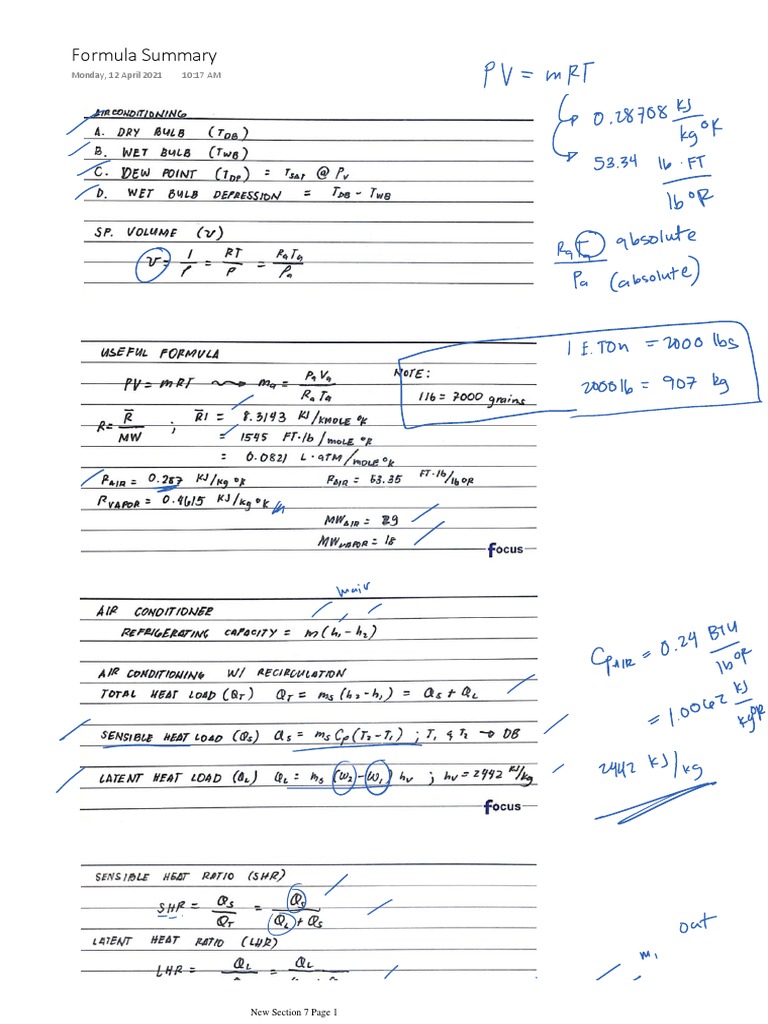 Formula Summary
Monday, 12 April 2021 10:17 AM
PV = mRT
0.28708 KJ/kg°K
53.34 lb·FT/lb°R
AIRCONDITIONING
A. DRY BULB (T_DB)
B. WET BULB (T_WB)
C. DEW POINT (T_DP) = T_SAT @ P_V
D. WET BULB DEPRESSION = T_DB - T_WB
SP. VOLUME (v)
v = 1/ρ = RT/P = RaTa/Pa
RaTa absolute
Pa (absolute)
USEFUL FORMULA
PV = mRT ⟿ ma = PaVa/RaTa
NOTE:
1 lb = 7000 grains
1 E.Ton = 2000 lbs
2000 lb = 907 kg
R = R̅/MW ; R̅1 = 8.3143 KJ/KMOLE °K
= 1545 FT·lb/mOLE °R
= 0.0821 L·ATM/mOLE °K
R_AIR = 0.287 KJ/kg °K R_AIR = 53.35 FT·lb/lb°R
R_VAPOR = 0.4615 KJ/kg °K
MW_AIR = 29
MW_VAPOR = 18
focus
mair
AIR CONDITIONER
REFRIGERATING CAPACITY = m(h₁-h₂)
AIR CONDITIONING W/ RECIRCULATION
TOTAL HEAT LOAD (Q_T) Q_T = ms(h₂-h₁) = Qs + QL
SENSIBLE HEAT LOAD (Qs) Qs = ms Cp(T₂-T₁) ; T₁ & T₂ → DB
LATENT HEAT LOAD (QL) QL = ms (ω₂-ω₁) hv ; hv = 2442 KJ/kg
Cp_AIR = 0.24 BTU/lb°R
= 1.0062 KJ/kg°K
2442 KJ/kg
focus
SENSIBLE HEAT RATIO (SHR)
SHR = Qs/QT = Qs/(QL + Qs)
LATENT HEAT RATIO (LHR)
LHR = QL = QL
out
m₁
New Section 7 Page 1